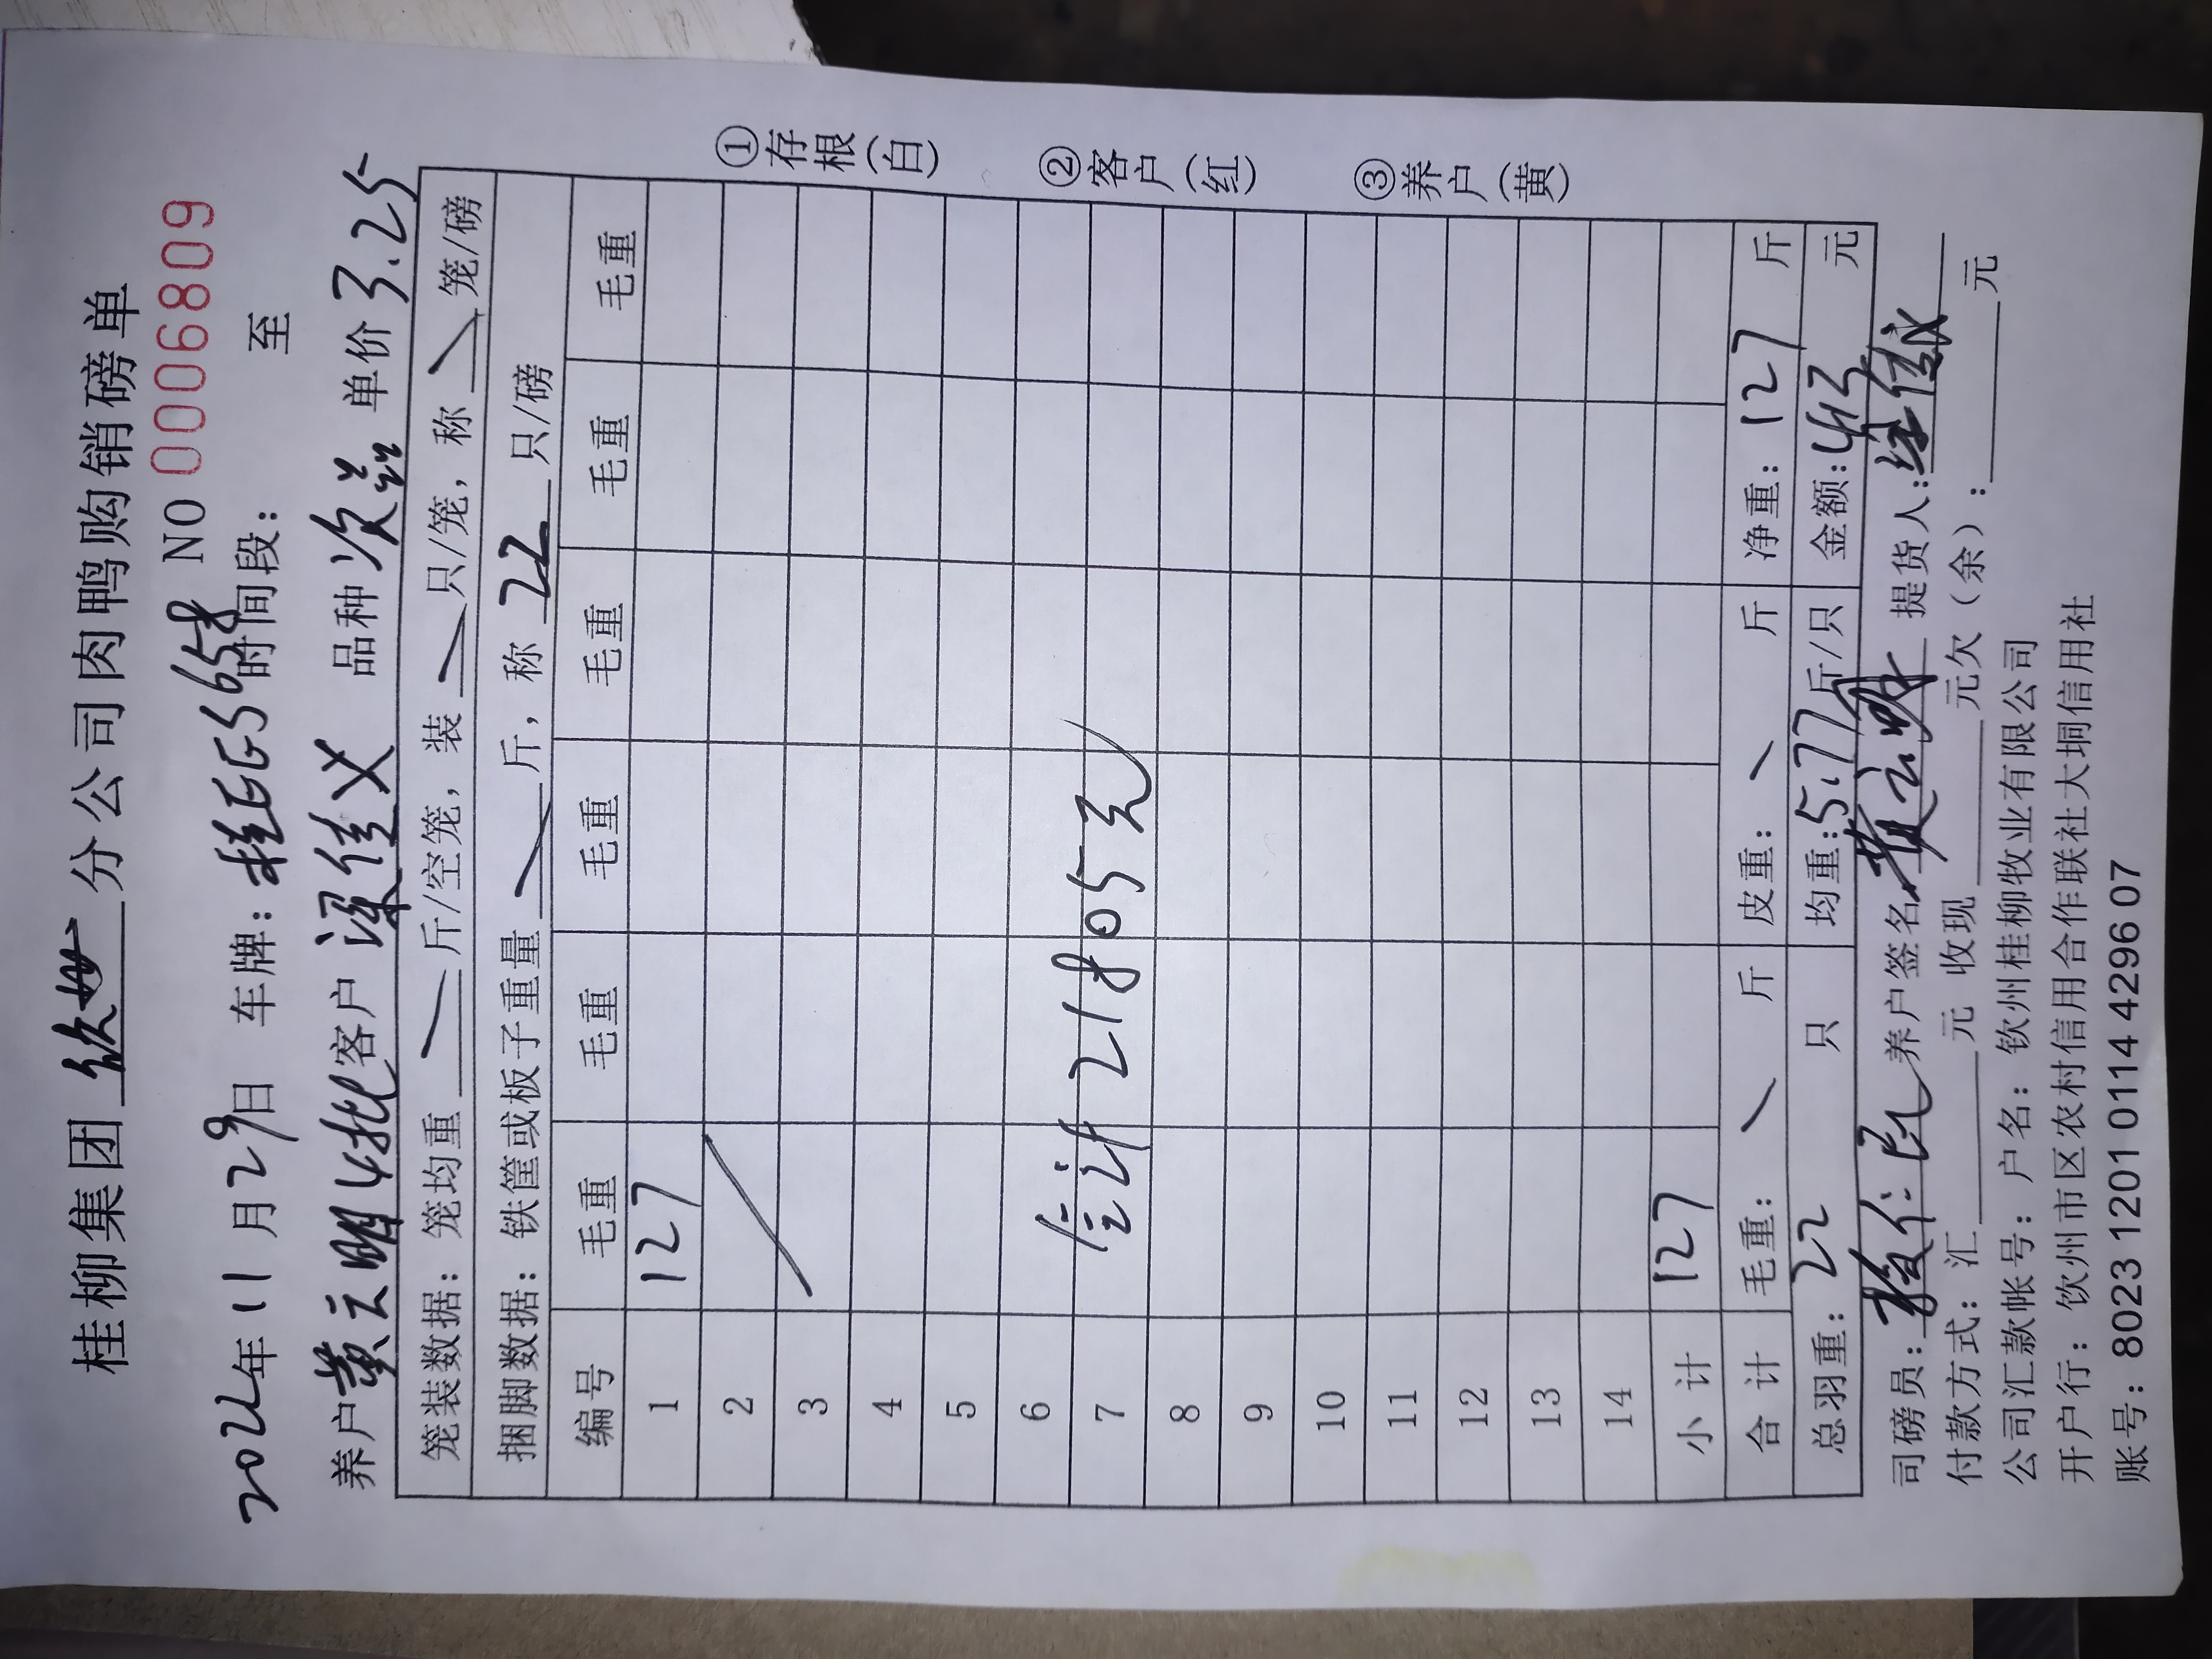 桂柳集团 钦州 分公司肉鸭购销磅单
NO 0006809
2022年11月29日 车牌: 桂EG5658 时间段: 至
养户 黄云明4批 客户 梁佳义 品种 次品 单价 3.25
笼装数据: 笼均重 斤/空笼, 装 只/笼, 称 笼/磅
捆脚数据: 铁筐或板子重量 斤, 称 22 只/磅
编号 毛重 毛重 毛重 毛重 毛重 毛重
1 127
2
3
4
5
6
7 合计21805元
8
9
10
11
12
13
14
小计 127
合计 毛重: 斤 皮重: 斤 净重: 127 斤
总羽重: 22 只 均重: 5.77 斤/只 金额: 413 元
司磅员: 养户签名 黄云明 提货人: 梁佳义
付款方式: 汇 元 收现 元欠(余): 元
公司汇款帐号: 户名: 钦州桂柳牧业有限公司
开户行: 钦州市区农村信用合作联社大垌信用社
账号: 8023 1201 0114 4296 07
①存根(白)
②客户(红)
③养户(黄)